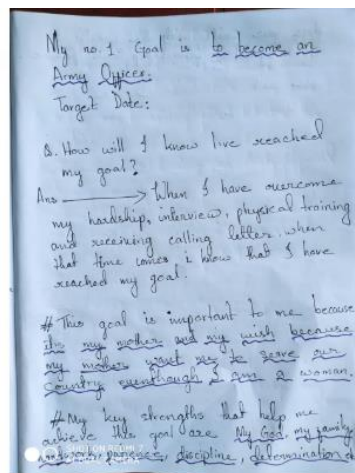 My no. 1. Goal is to become an
Army Officer.
Target Date:
Q. How will I know I've reached
my goal?
Ans → When I have overcome
my hardship, interview, physical training
and receiving calling letter, when
that time comes, i know that I have
reached my goal.
# This goal is important to me because
its my mother and my wish because
my mother want me to serve our
country eventhough I am a woman.
# My key strengths that help me
achieve this goal are My God, my family,
discipline, determination